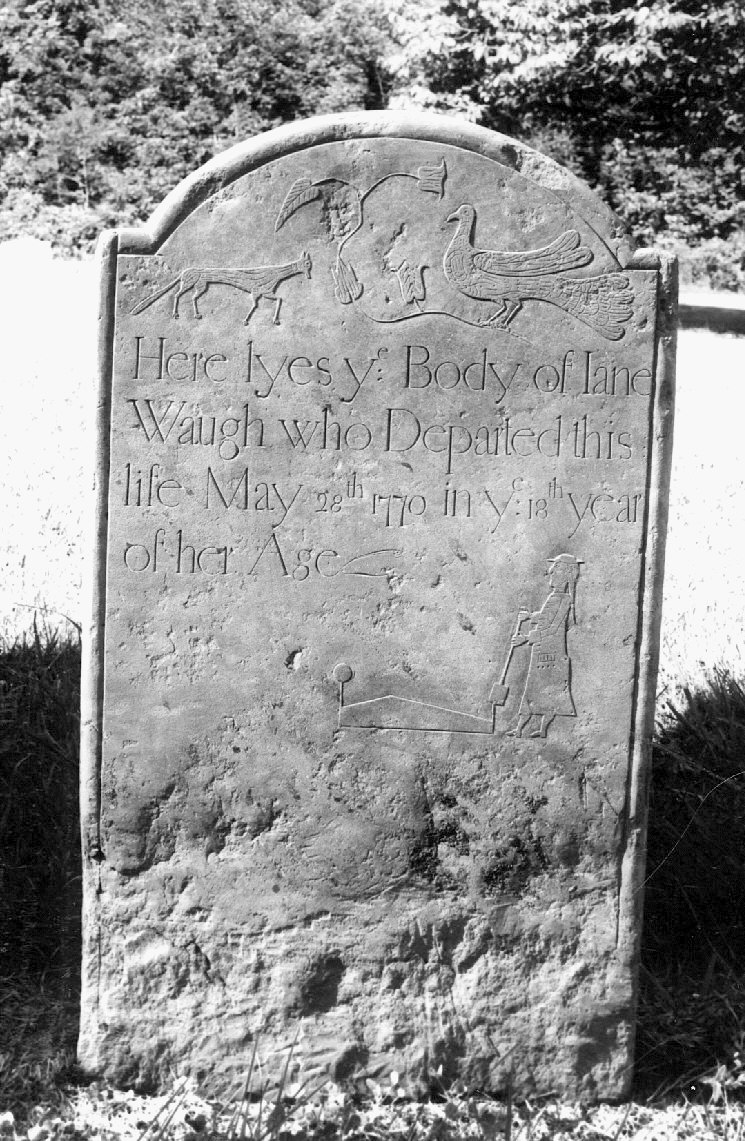 Here lyes yͤ: Body of Iane
Waugh who Departed this
life May 28ᵗʰ 1770 in yͤ: 18ᵗʰ year
of her Age